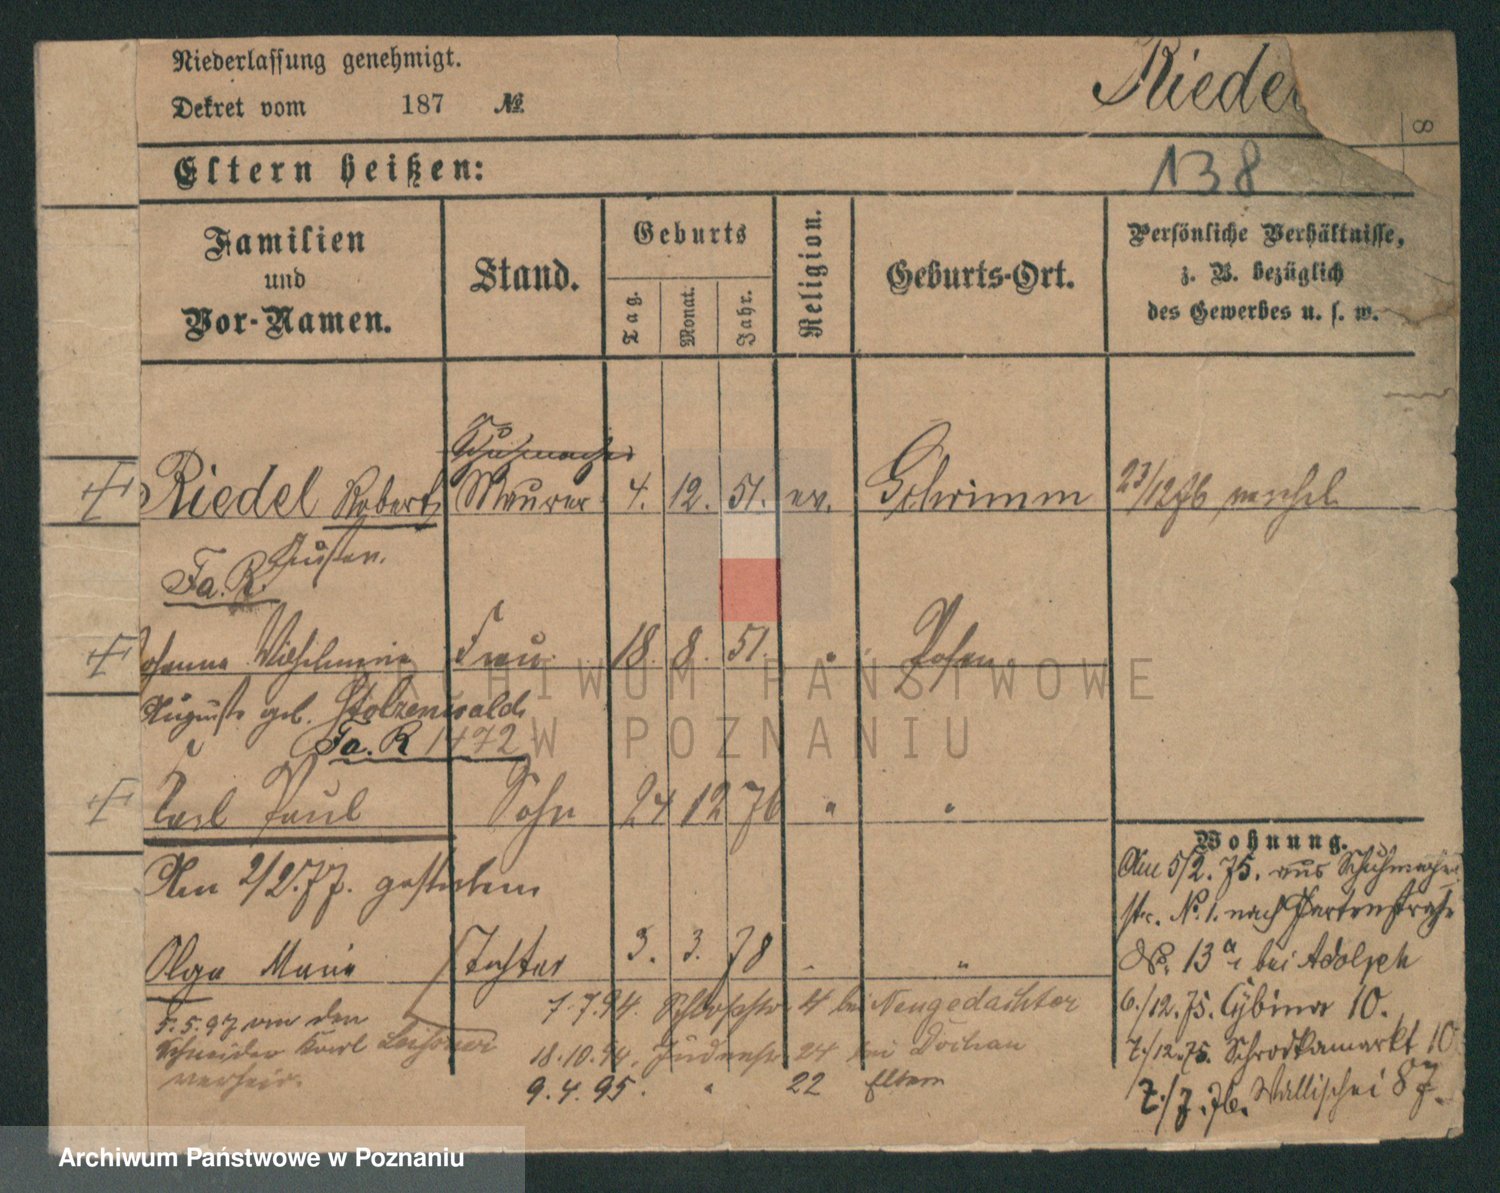 Niederlassung genehmigt.
Dekret vom 187 №
Riedel
8
Eltern heißen:
138
Familien und Vor-Namen.
Stand.
Geburts
Tag.
Monat.
Jahr.
Religion.
Geburts-Ort.
Persönliche Verhältnisse,
z. B. bezüglich
des Gewerbes u. s. w.
Schuhmacher
Riedel Robert Maurer 4. 12. 51. ev. Schrimm 23/12 76
Gustav.
Fa. R.
Johanna Wilhelmine Frau 18. 8. 51. " Posen
Auguste geb. Stolzenwald
Fa. R 1472
Carl Paul Sohn 24 12 76 " "
Am 2/2.77. gestorben
Olga Marie Tochter 3. 3. 78 "
5.5.97 an den
Schneider Karl
verheir.
7.7.94. Schloßstr 4 bei Neugedachter
18.10.94. Judenstr 24 bei
9.4.95. " 22 Eltern
Wohnung.
Am 5/2.75. aus Schuhmacher
str. No. 1. nach Gartenstraße
No. 13a bei Adolph
6./12.75. Cybina 10.
7./12.75. Schrodkamarkt 10
7./7.76. Wallischei 87.
ARCHIWUM PAŃSTWOWE
W POZNANIU
Archiwum Państwowe w Poznaniu